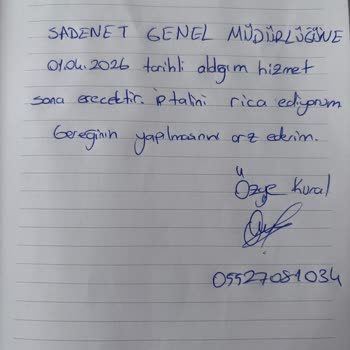 SADENET GENEL MÜDÜRLÜĞÜNE
01.04.2026 tarihli aldığım hizmet
sona erecektir. iptalini rica ediyorum
Gereğinin yapılmasını arz ederim.
Özge Kural
05527081034